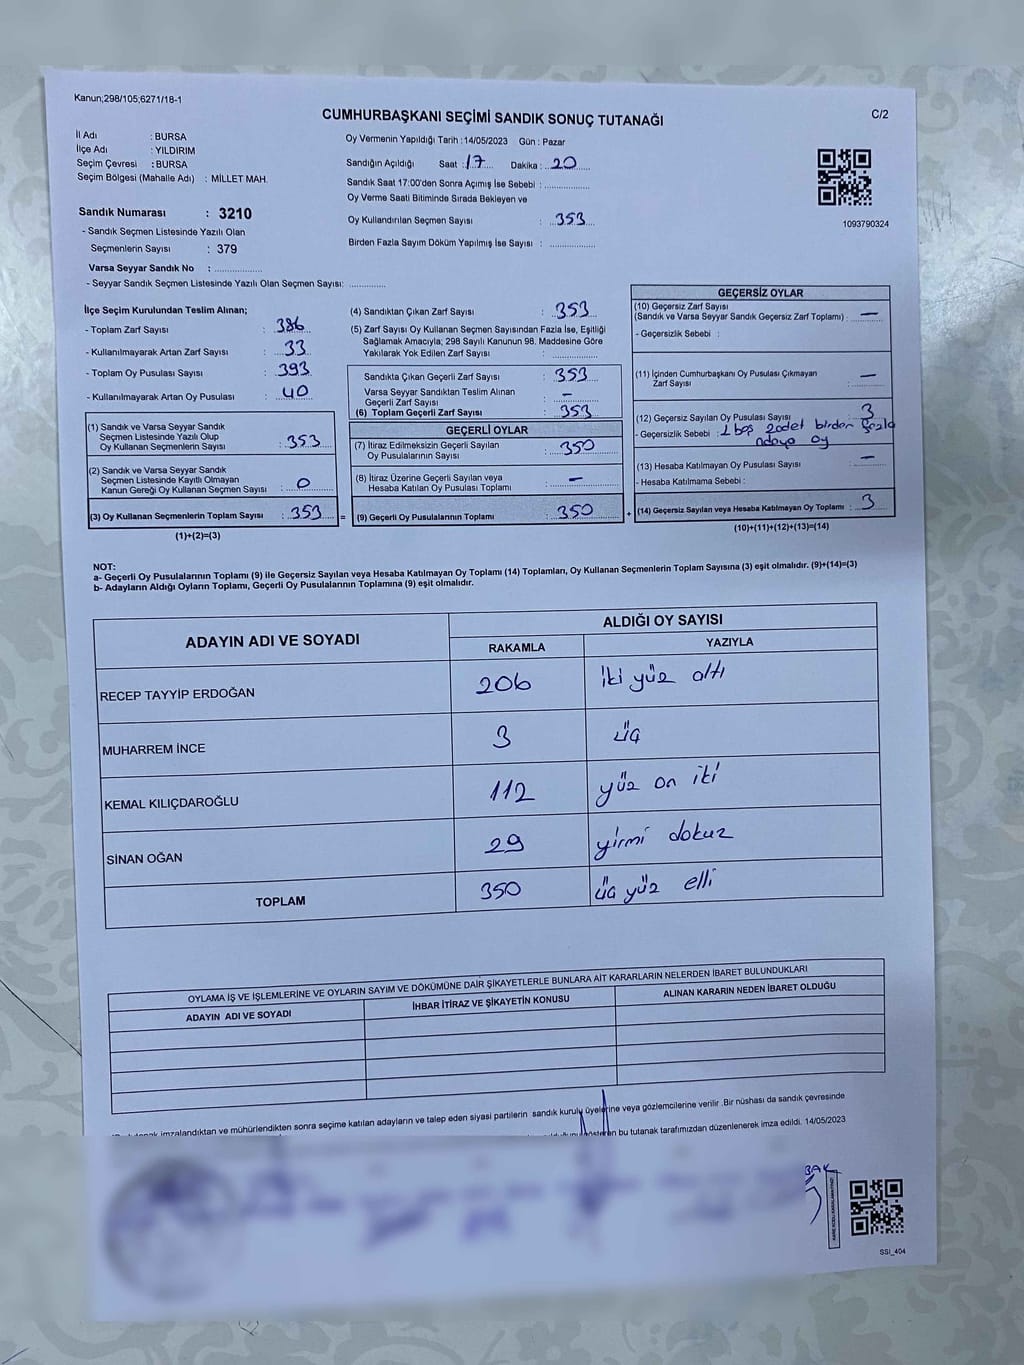 Kanun;298/105;6271/18-1
CUMHURBAŞKANI SEÇİMİ SANDIK SONUÇ TUTANAĞI
C/2
İl Adı : BURSA
İlçe Adı : YILDIRIM
Seçim Çevresi : BURSA
Seçim Bölgesi (Mahalle Adı) : MİLLET MAH.
Sandık Numarası : 3210
- Sandık Seçmen Listesinde Yazılı Olan
Seçmenlerin Sayısı : 379
Varsa Seyyar Sandık No : ..................
- Seyyar Sandık Seçmen Listesinde Yazılı Olan Seçmen Sayısı: .............
Oy Vermenin Yapıldığı Tarih :14/05/2023 Gün : Pazar
Sandığın Açıldığı Saat : 17 Dakika : 20
Sandık Saat 17:00'den Sonra Açımış İse Sebebi : ................
Oy Verme Saati Bitiminde Sırada Bekleyen ve
Oy Kullandırılan Seçmen Sayısı : 353
Birden Fazla Sayım Döküm Yapılmış İse Sayısı : ................
1093790324
İlçe Seçim Kurulundan Teslim Alınan;
- Toplam Zarf Sayısı : 386
- Kullanılmayarak Artan Zarf Sayısı : 33
- Toplam Oy Pusulası Sayısı : 393
- Kullanılmayarak Artan Oy Pusulası : 40
(1) Sandık ve Varsa Seyyar Sandık
Seçmen Listesinde Yazılı Olup
Oy Kullanan Seçmenlerin Sayısı : 353
(2) Sandık ve Varsa Seyyar Sandık
Seçmen Listesinde Kayıtlı Olmayan
Kanun Gereği Oy Kullanan Seçmen Sayısı : 0
(3) Oy Kullanan Seçmenlerin Toplam Sayısı : 353
(1)+(2)=(3)
(4) Sandıktan Çıkan Zarf Sayısı : 353
(5) Zarf Sayısı Oy Kullanan Seçmen Sayısından Fazla İse, Eşitliği
Sağlamak Amacıyla; 298 Sayılı Kanunun 98. Maddesine Göre
Yakılarak Yok Edilen Zarf Sayısı : ................
Sandıkta Çıkan Geçerli Zarf Sayısı : 353
Varsa Seyyar Sandıktan Teslim Alınan
Geçerli Zarf Sayısı : -
(6) Toplam Geçerli Zarf Sayısı : 353
GEÇERLİ OYLAR
(7) İtiraz Edilmeksizin Geçerli Sayılan
Oy Pusulalarının Sayısı : 350
(8) İtiraz Üzerine Geçerli Sayılan veya
Hesaba Katılan Oy Pusulası Toplamı : -
= (9) Geçerli Oy Pusulalarının Toplamı : 350
GEÇERSİZ OYLAR
(10) Geçersiz Zarf Sayısı
(Sandık ve Varsa Seyyar Sandık Geçersiz Zarf Toplamı) : -
- Geçersizlik Sebebi :
(11) İçinden Cumhurbaşkanı Oy Pusulası Çıkmayan
Zarf Sayısı : -
(12) Geçersiz Sayılan Oy Pusulası Sayısı : 3
- Geçersizlik Sebebi : 1 boş 2 adet birden fazla
adaya oy
(13) Hesaba Katılmayan Oy Pusulası Sayısı : -
- Hesaba Katılmama Sebebi :
+ (14) Geçersiz Sayılan veya Hesaba Katılmayan Oy Toplamı : 3
(10)+(11)+(12)+(13)=(14)
NOT:
a- Geçerli Oy Pusulalarının Toplamı (9) ile Geçersiz Sayılan veya Hesaba Katılmayan Oy Toplamı (14) Toplamları, Oy Kullanan Seçmenlerin Toplam Sayısına (3) eşit olmalıdır. (9)+(14)=(3)
b- Adayların Aldığı Oyların Toplamı, Geçerli Oy Pusulalarının Toplamına (9) eşit olmalıdır.
ADAYIN ADI VE SOYADI
ALDIĞI OY SAYISI
RAKAMLA YAZIYLA
RECEP TAYYİP ERDOĞAN 206 iki yüz altı
MUHARREM İNCE 3 üç
KEMAL KILIÇDAROĞLU 112 yüz on iki
SİNAN OĞAN 29 yirmi dokuz
TOPLAM 350 üç yüz elli
OYLAMA İŞ VE İŞLEMLERİNE VE OYLARIN SAYIM VE DÖKÜMÜNE DAİR ŞİKAYETLERLE BUNLARA AİT KARARLARIN NELERDEN İBARET BULUNDUKLARI
ADAYIN ADI VE SOYADI
İHBAR İTİRAZ VE ŞİKAYETİN KONUSU
ALINAN KARARIN NEDEN İBARET OLDUĞU
imzalandıktan ve mühürlendikten sonra seçime katılan adayların ve talep eden siyasi partilerin sandık kurulu üyelerine veya gözlemcilerine verilir .Bir nüshası da sandık çevresinde
bu tutanak tarafımızdan düzenlenerek imza edildi. 14/05/2023
SSİ_404